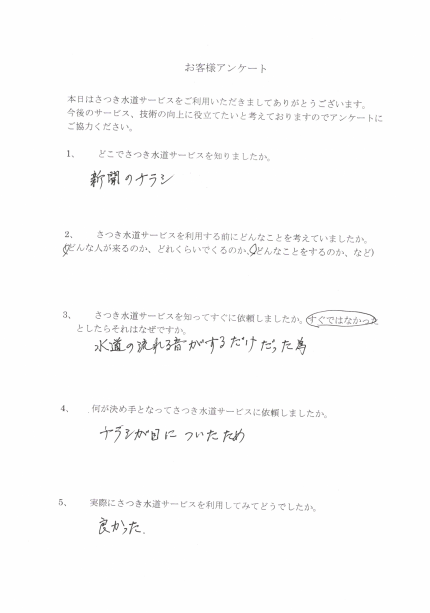 お客様アンケート
本日はさつき水道サービスをご利用いただきましてありがとうございます。
今後のサービス、技術の向上に役立てたいと考えておりますのでアンケートに
ご協力ください。
1、 どこでさつき水道サービスを知りましたか。
新聞のチラシ
2、 さつき水道サービスを利用する前にどんなことを考えていましたか。
(どんな人が来るのか、どれくらいでくるのか、どんなことをするのか、など)
3、 さつき水道サービスを知ってすぐに依頼しましたか。すぐではなかった
としたらそれはなぜですか。
水道の流れる音がするだけだった為
4、 何が決め手となってさつき水道サービスに依頼しましたか。
チラシが目についたため
5、 実際にさつき水道サービスを利用してみてどうでしたか。
良かった.